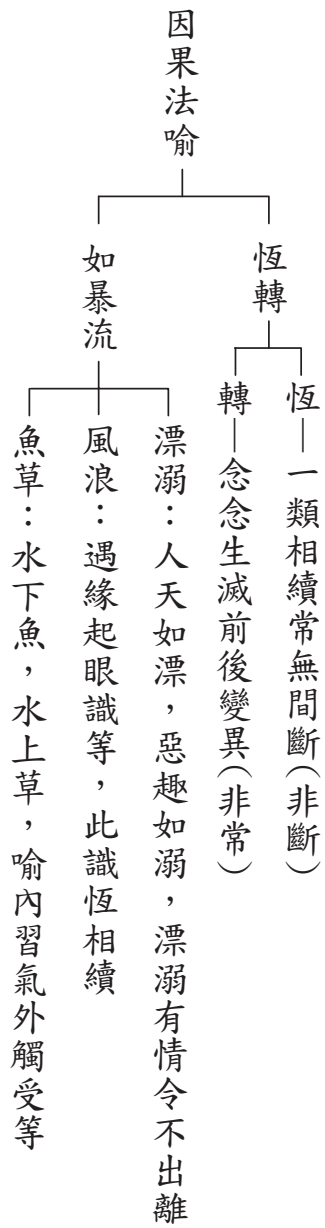 因果法喻
恆轉
恆—一類相續常無間斷(非斷)
轉—念念生滅前後變異(非常)
如暴流
漂溺：人天如漂，惡趣如溺，漂溺有情令不出離
風浪：遇緣起眼識等，此識恆相續
魚草：水下魚，水上草，喻內習氣外觸受等